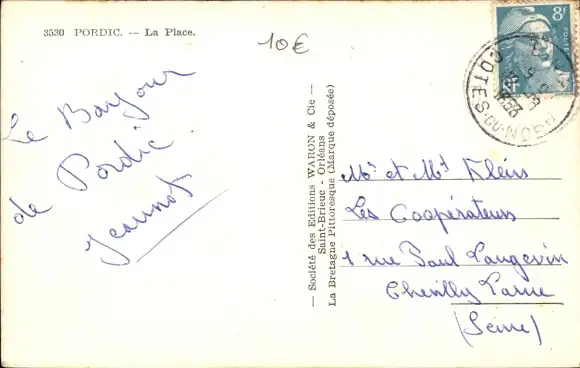 3530 PORDIC. — La Place.
10€
Le Bonjour
de Pordic
Jeannot
— Société des Editions WARON & Cie —
Saint-Brieuc - Orléans
La Bretagne Pittoresque (Marque déposée)
8f
RF
COTES-DU-NORD
Mr et Md Kleins
Les Coopérateurs
1 rue Paul Langevin
Chevilly Larue
(Seine)